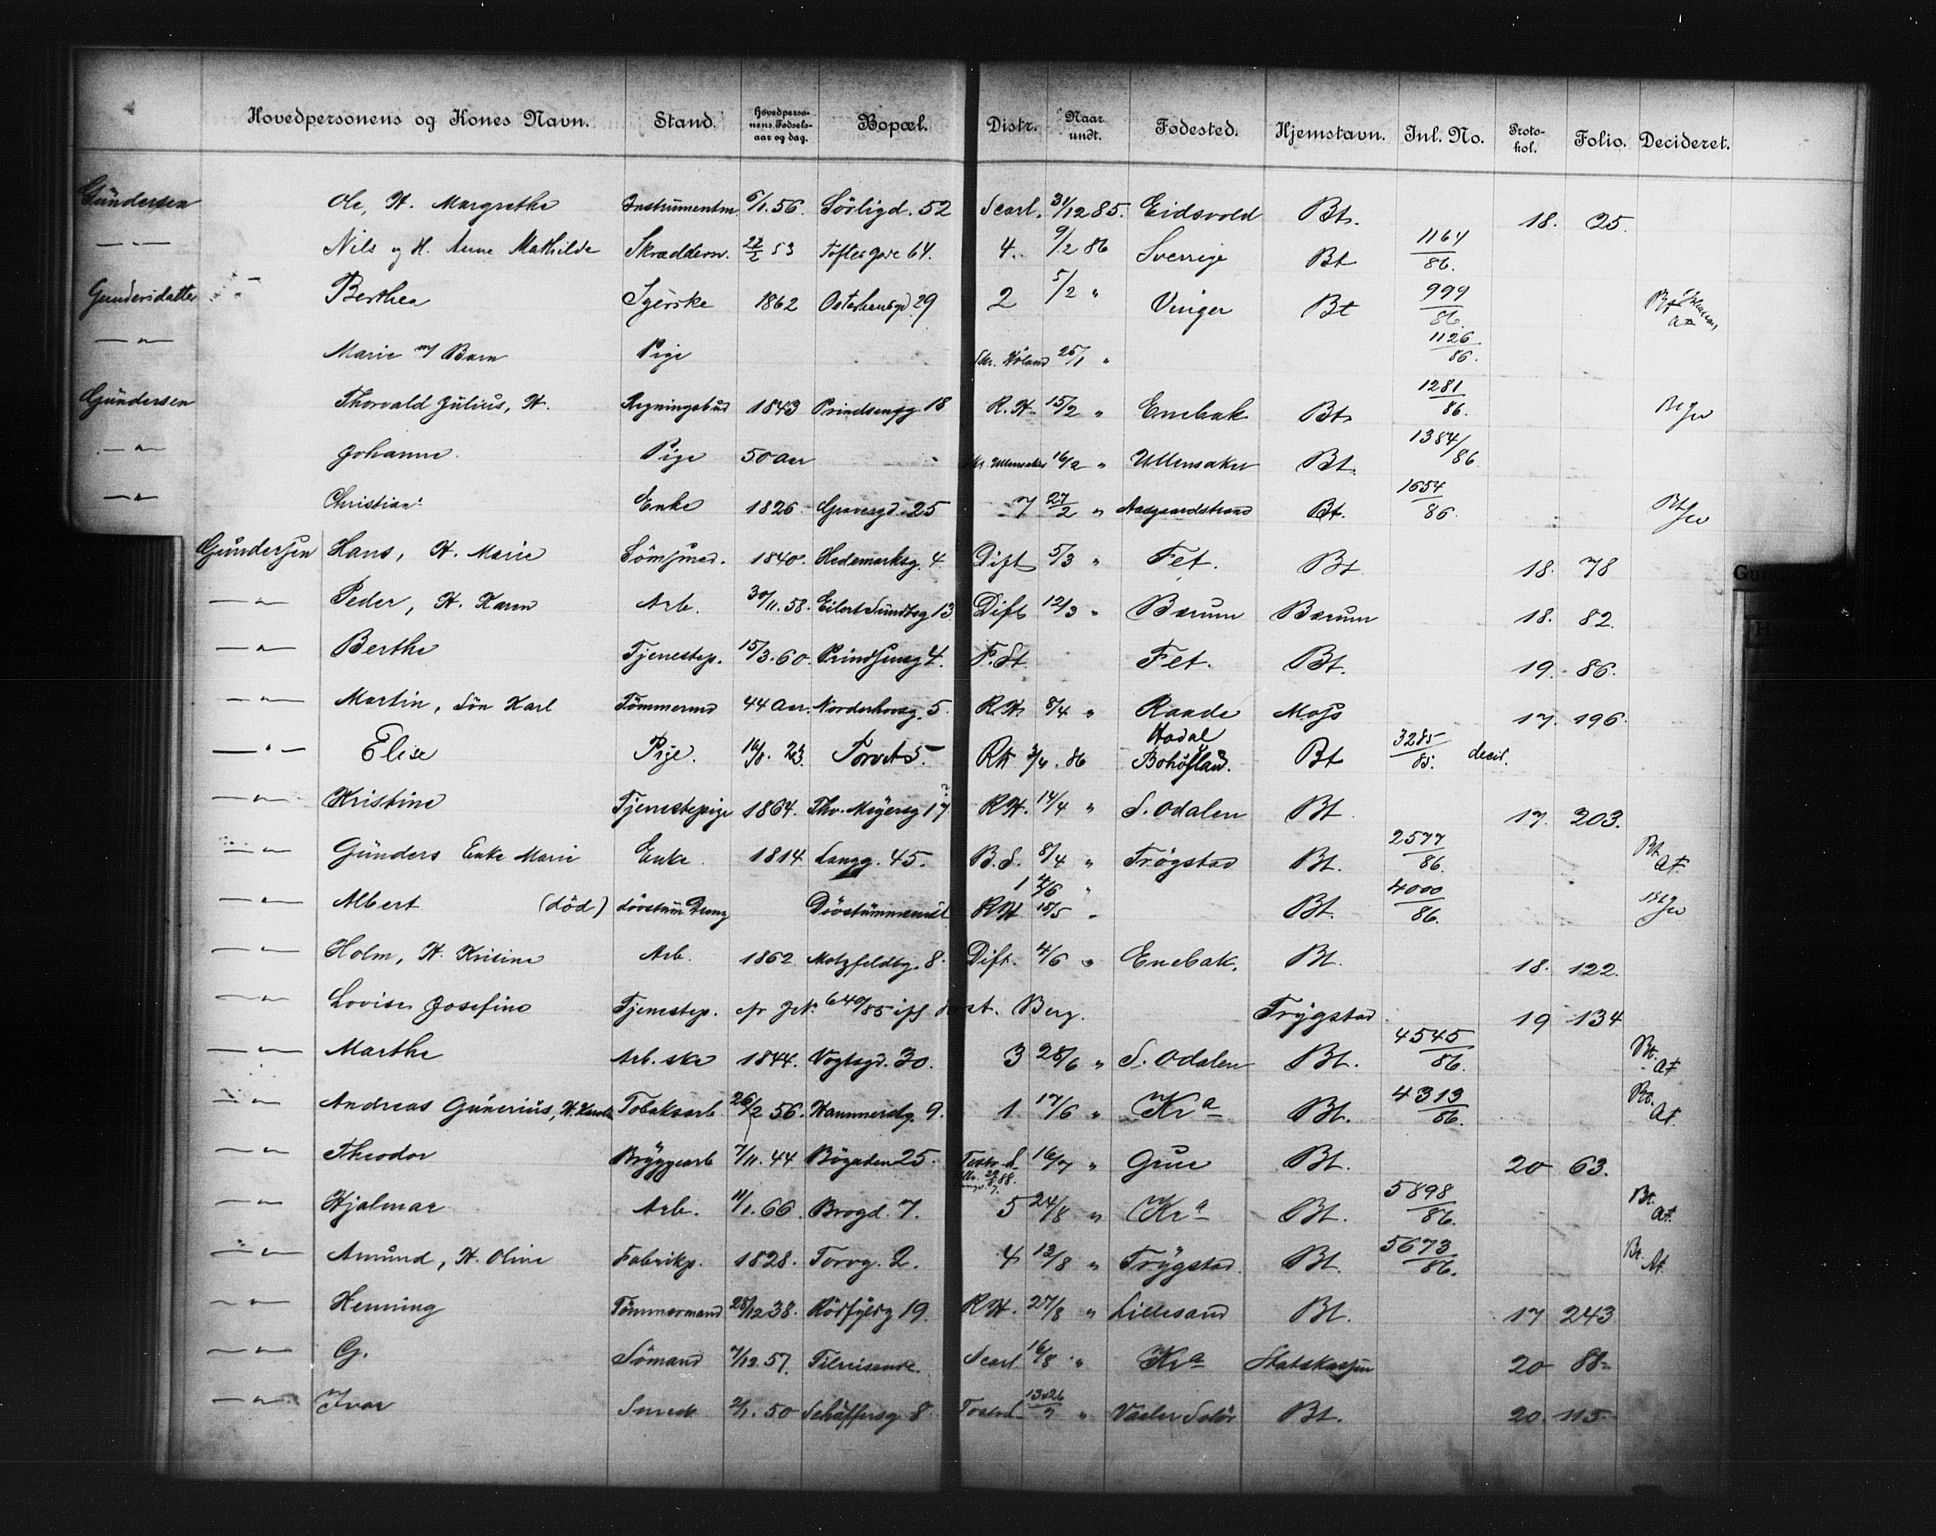 Hovedpersonens og Kones Navn. Stand. Hovedpersonens Fødselsaar og dag. Bopæl. Distr. Naar undt. Fødested. Hjemstavn. Inl. No. Protokol. Folio. Decideret.
Gundersen Ole, H. Margrethe Instrumentm. 6/1.56. Sörligd. 52 Scarl. 31/12 85. Eidsvold Bt. 18. 25.
—"— Nils og H. Anne Mathilde Skræddersv. 22/2 53 Toftesgade 64. 4. 9/2 86 Sverrige Bt 1164/86.
Gundersdatter Berthea Syerske 1862 29 2 5/2 " Vinger Bt 999/86. At
—"— Marie m/ Barn Pige Höland 25/1 " 1126/86.
Gundersen Thorvald Julius, H. Regningsbud 1843 Prindsensg. 18 R.H. 15/2 " Enebak Bt. 1281/86.
—"— Johanne. Pige 50 Aar Ullensaker 16/2 " Ullensaker Bt. 1384/86
—"— Christian Enke 1826. 25 7 27/2 " Aasgaardstrand Bt. 1654/86
Gundersen Hans, H. Marie 1840. Hedemarksg. 4. Dift 5/3 " Fet. Bt 18. 78
—"— Peder, H. Karen Arb. 30/11.58. Eilert Sundtsg 13 Dift 12/3 " Bærum Bærum 18. 82.
—"— Berthe Tjenestep. 15/3.60. Prindsensg 4. F. St Fet. Bt. 19. 86.
—"— Martin, Sön Karl Tömmermd 44 Aar. Norderhovsg. 5. R.H. 8/4 " Raade Moss 17. 196.
—"— Elise Pige. 23. Torvet 5. RH 3/4. 86 Hadal Bohuslän. Bt 3285/85. decid.
—"— Kristine Tjenestepige 1864. Thv. Meyersg 17 R.H. 14/4 " S. Odalen Bt 17. 203.
—"— Gunders Enke Marie Enke. 1814. Langg. 45. B.S. 8/4 " Trögstad Bt. 2577/86. Bt. At.
—"— Albert (död) dövstum Dreng R.H. 15/5 " 1 4/6 " Bt. 4000/86.
—"— Holm, H. Kristine Arb. 1862. Motzfeldtsg. 8. Dift. 4/6 " Enebak. Bt. 18. 122.
—"— Lovise Josefine Tjenestep. cfr JN. 640/85 Berg. Trögstad 19 134
—"— Marthe Arb. ske 1844. Vogtsgd. 30. 3 28/6 " S. Odalen Bt. 4545/86. Bt. At
—"— Andreas Gunerius, H. Tobaksarb 26/2 56. Hammersbg. 9. 1 17/6 " Kra Bt. 4313/86. Bt. At.
—"— Theodor Bryggearb 7/11.44 Bögaden 25. 16/7 " Grue Bt. 20 63.
—"— Hjalmar Arb. 11/1.66. Brogd. 7. 5 24/8 " Kra Bt. 5898/86. Bt. At.
—"— Amund, H. Oline Fabrikp. 1828. Torvg. 2. 4 13/8 " Trögstad. Bt. 5673/86. Bt. At.
—"— Henning Tömmermand 28/12 38. Rödfyldg 19. R.H. 27/8 " Lillesand Bt. 17 243
—"— G. Sömand 7/12.57. Tilreisende. Scarl 16/8 " Kra Statskassen 20 88
—"— Ivar Smed 2/1.50 Schäffersg 8. " Vaaler Solör Bt. 20. 115